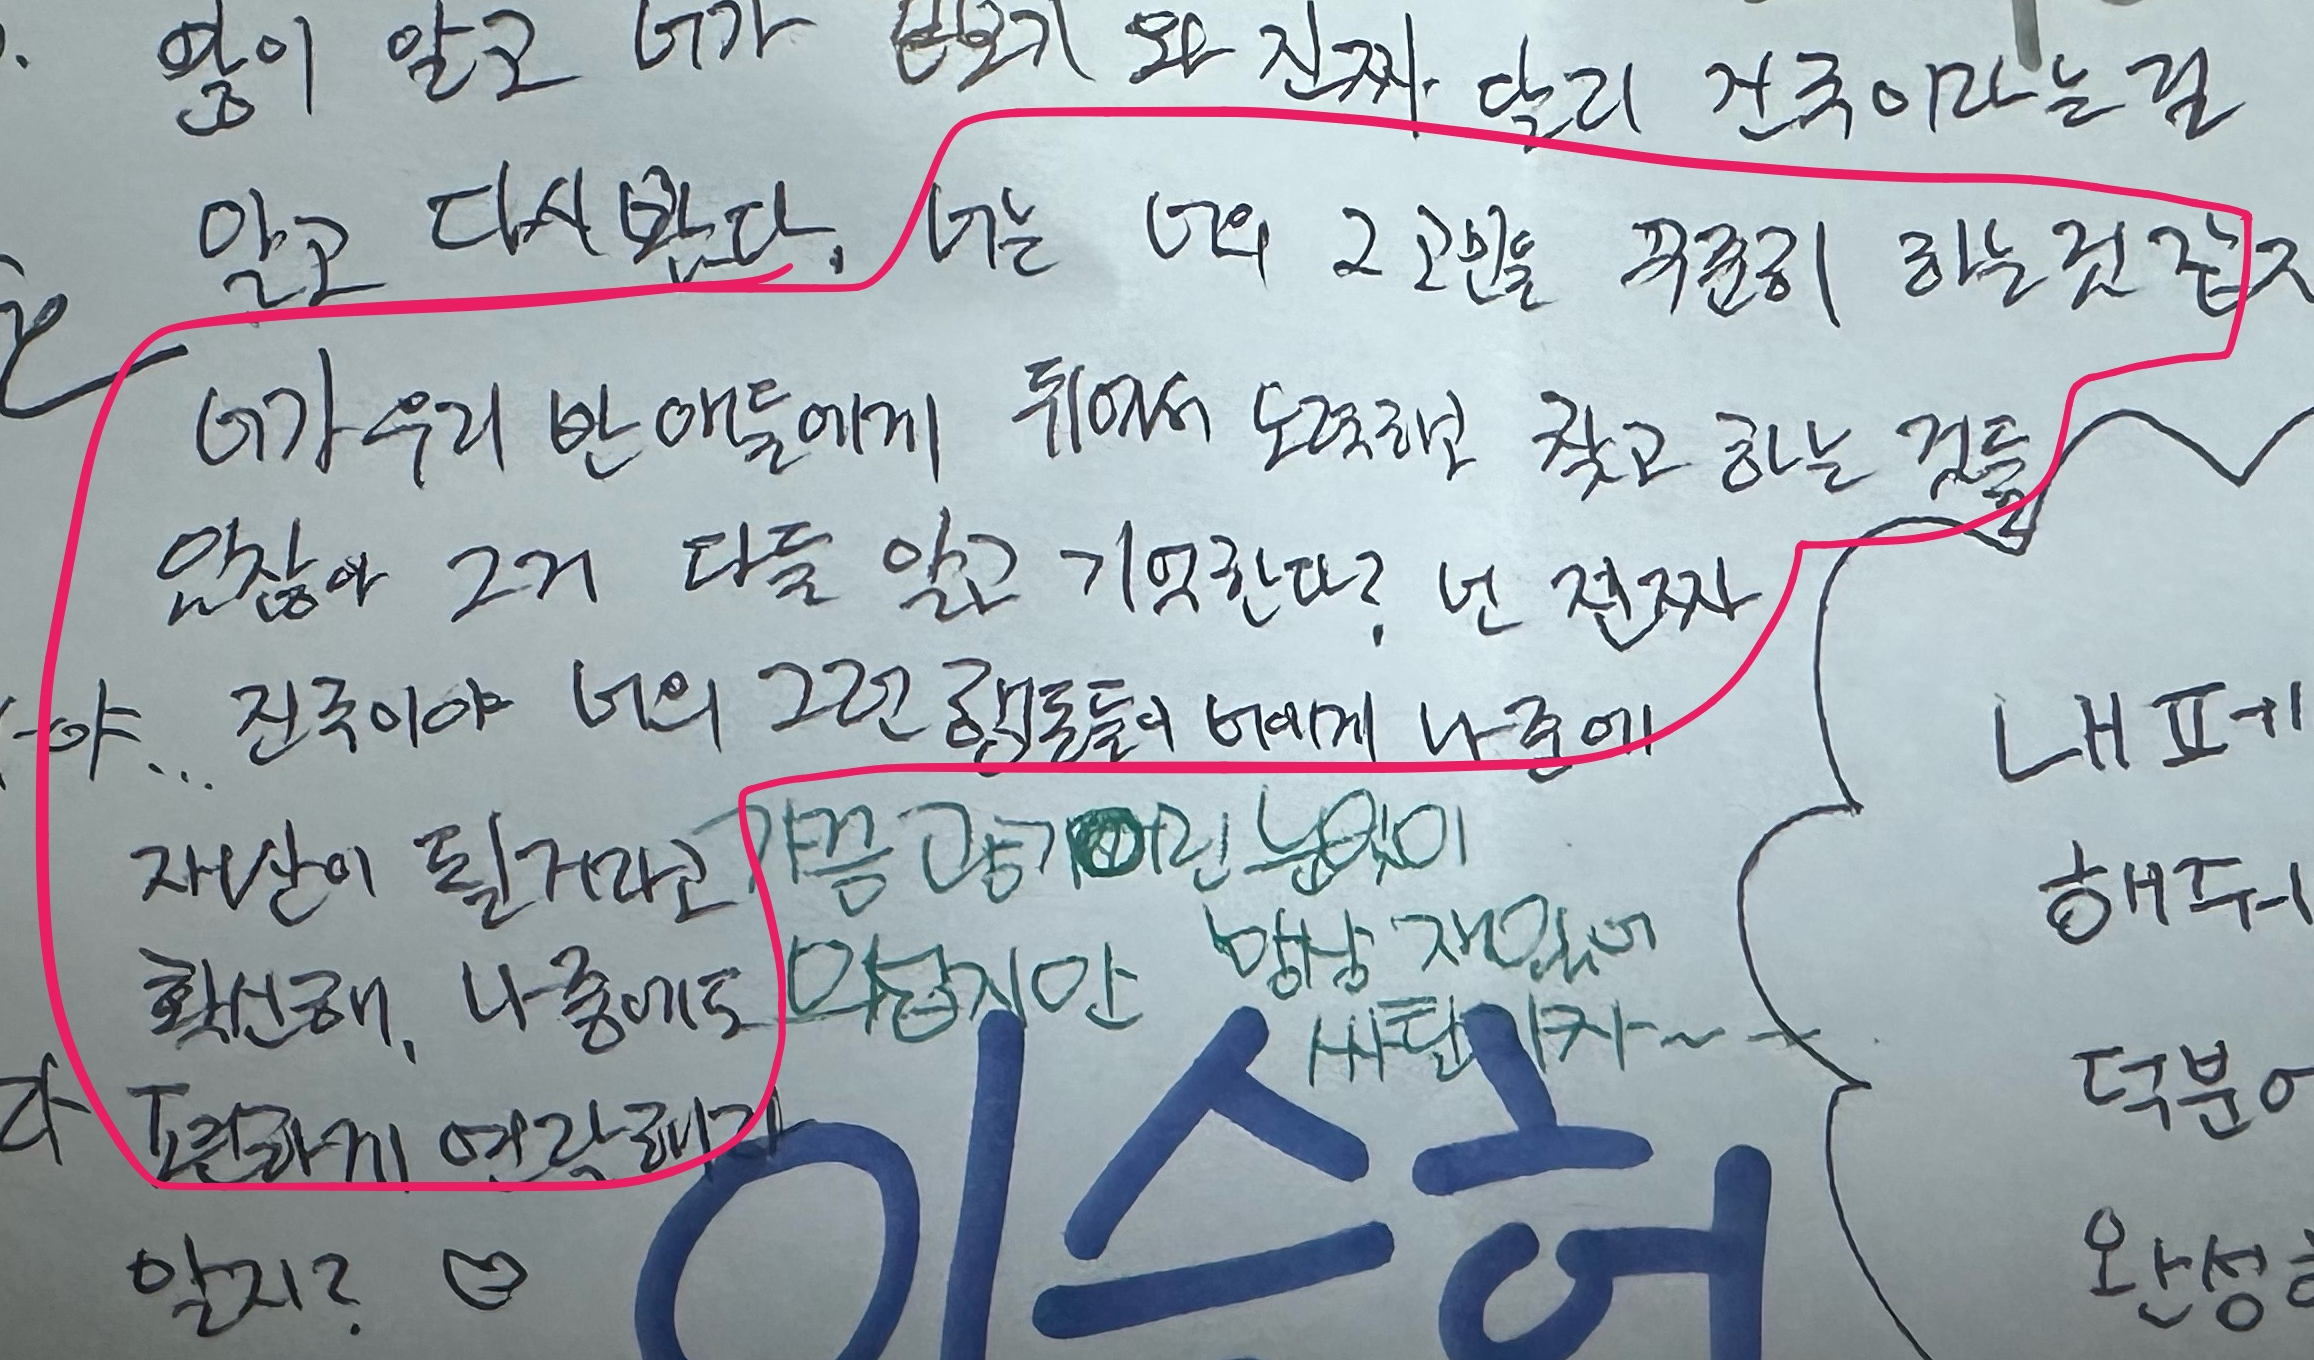 많이 알고 너가 보기 와 진짜 달리 진국이라는걸
알고 다시봤다. 너는 너의 그 고민을 꾸준히 하는것 같
너가 우리 반 애들에게 뒤에서 노력하고 찾고 하는 것들
있잖아 그거 다들 알고 기억한다? 넌 진짜
진국이야 너의 그런 행동들이 너에게 나중에
자산이 될거라고
확신해, 나중에도
편하게 연락해라
알지?
가끔 광기어린 눈빛이
무섭지만 항상 재밌어
이승헌
내
해줘
덕분에
완성